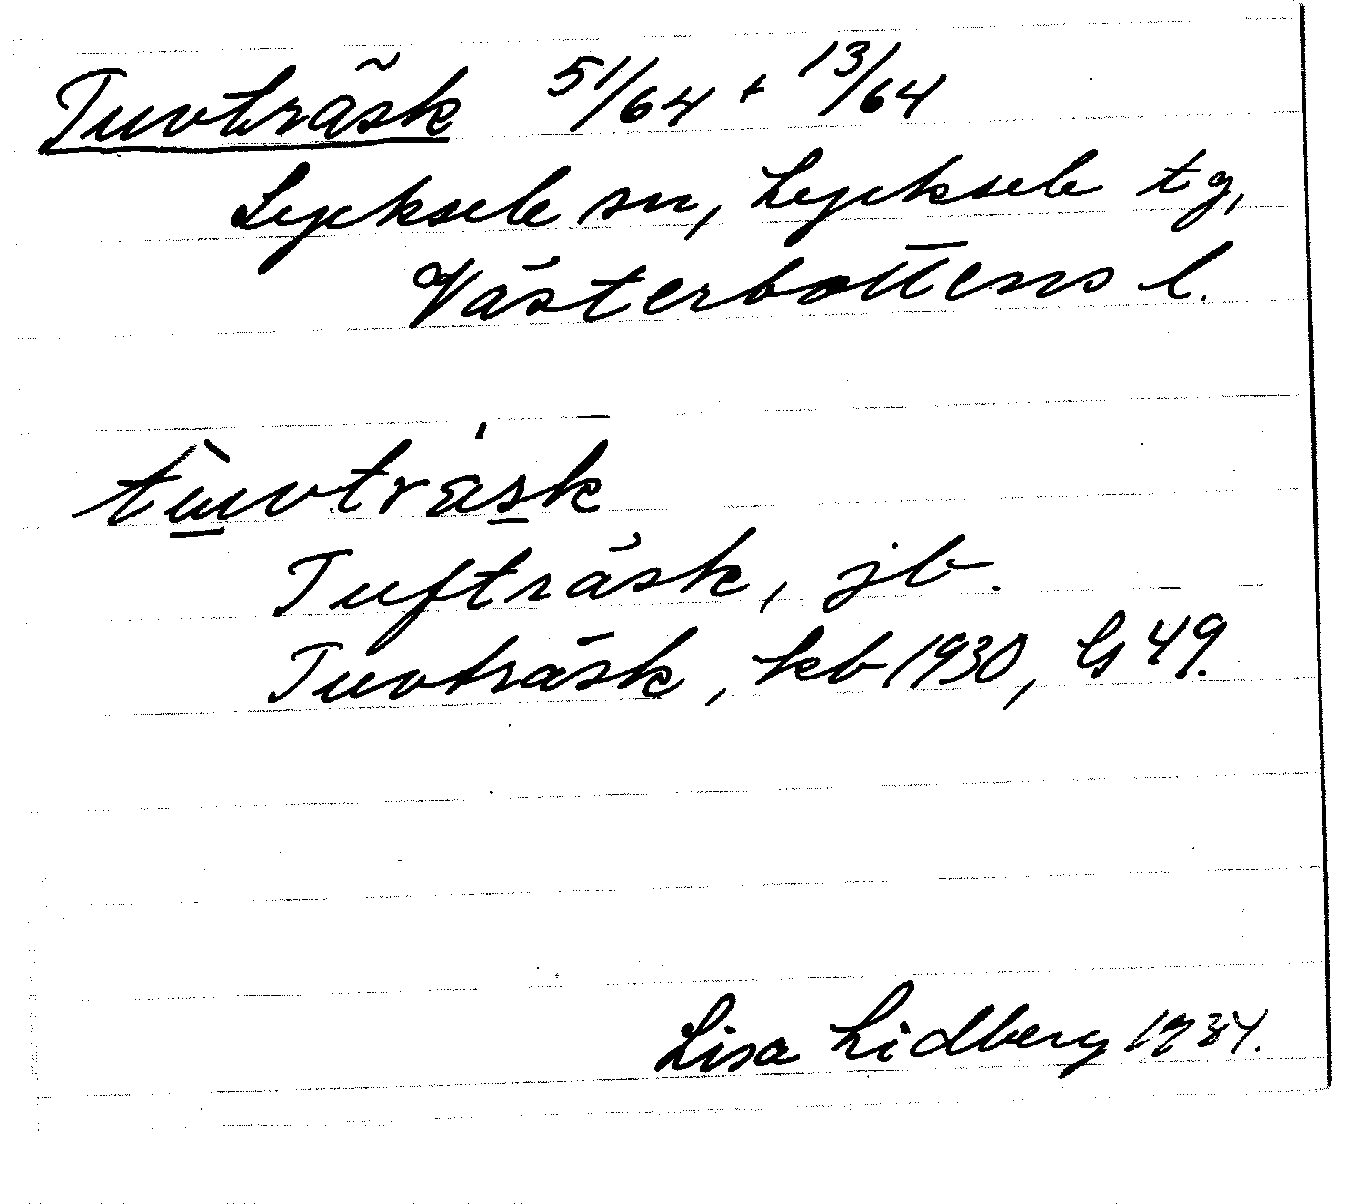 Tuvträsk 51/64 + 13/64
Lycksele sn, Lycksele tg,
Västerbottens l.
tùvtrásk
Tufträsk, jb.
Tuvträsk, kb 1930, G 49.
Lisa Lidberg 1934.